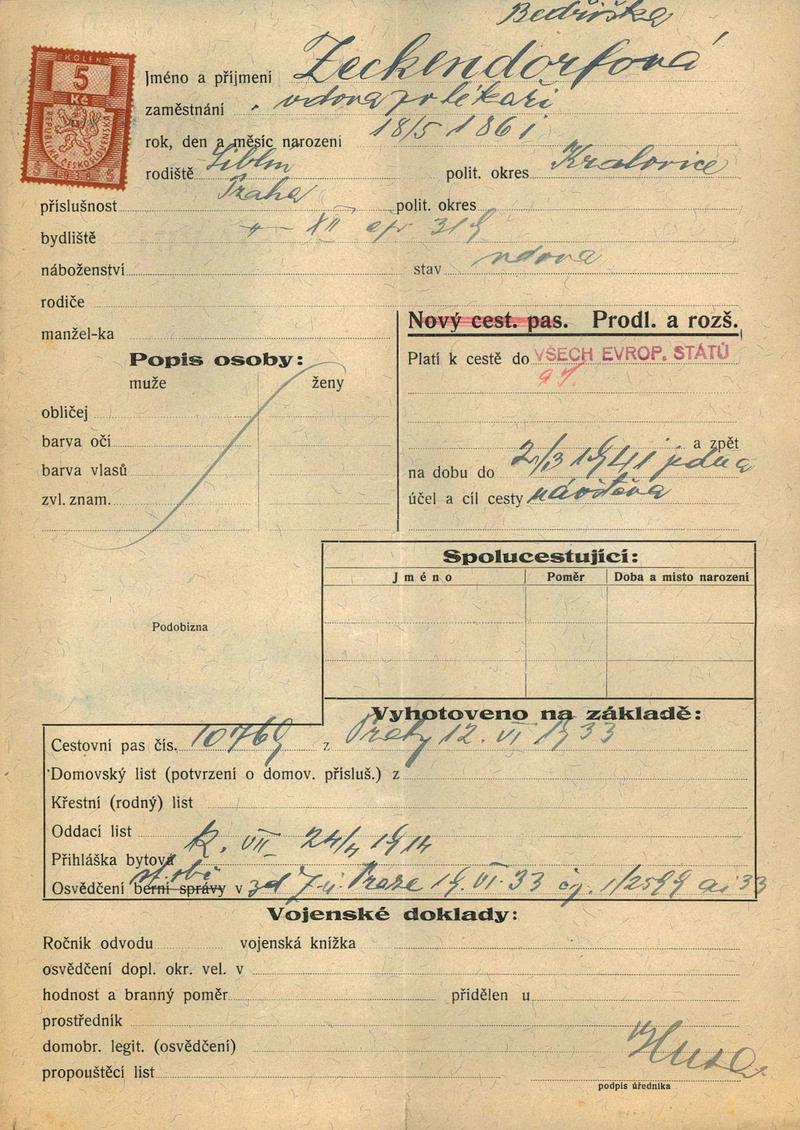 Bedřiška
KOLEK
5
Kč
REPUBLIKA ČESKOSLOVENSKÁ
5 1938 5
Jméno a příjmení Zeckendorfová
zaměstnání vdova po lékaři
rok, den a měsíc narození 18/5 1861
rodiště Liblín polit. okres Kralovice
příslušnost Praha polit. okres
bydliště " XII čp 319
náboženství stav vdova
rodiče
manžel-ka
Nový cest. pas. Prodl. a rozš.
Popis osoby:
muže ženy
obličej
barva očí
barva vlasů
zvl. znam.
Platí k cestě do VŠECH EVROP. STÁTŮ
a zpět
na dobu do 2/3 1941
účel a cíl cesty návštěva
Spolucestující:
Jméno Poměr Doba a misto narozeni
Podobizna
Vyhotoveno na základě:
Cestovní pas čís. 10769 z Prahy 12. VI 1933
Domovský list (potvrzení o domov. přísluš.) z
Křestní (rodný) list
Oddací list
Přihláška bytová k. VII 24/4 1914
Osvědčení berní správy v Praze 19. VI. 33 čj. 1/2599 ai 33
Vojenské doklady:
Ročník odvodu vojenská knížka
osvědčení dopl. okr. vel. v
hodnost a branný poměr přidělen u
prostředník
domobr. legit. (osvědčení)
propouštěcí list
podpis úředníka